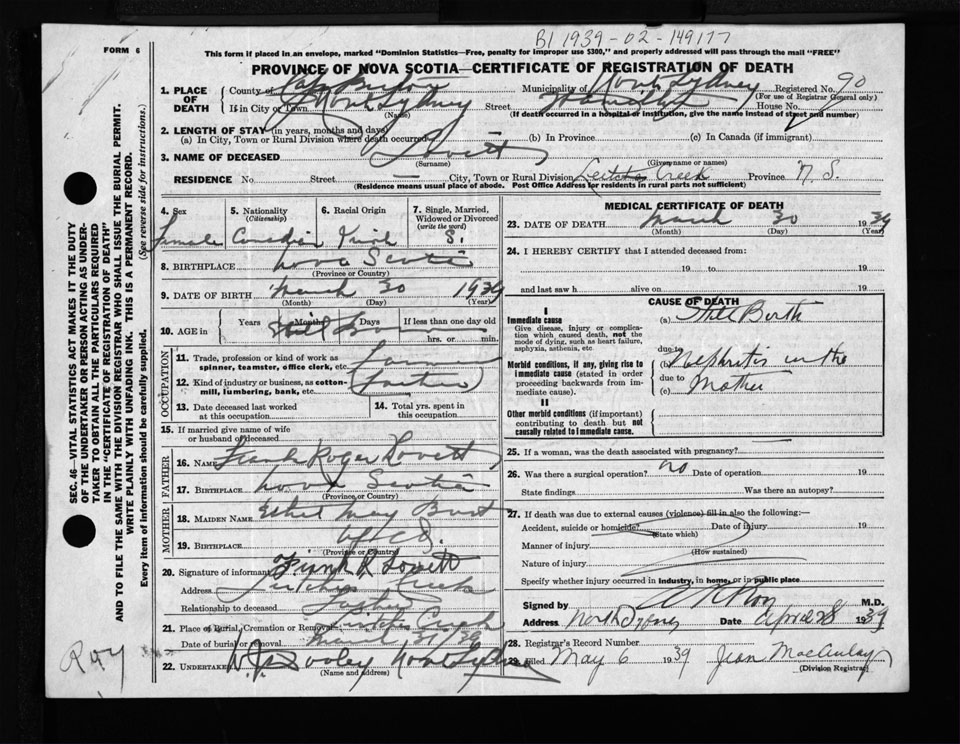 B1 1939-02-149177
FORM 6
This form if placed in an envelope, marked "Dominion Statistics—Free, penalty for improper use $300," and properly addressed will pass through the mail "FREE"
PROVINCE OF NOVA SCOTIA—CERTIFICATE OF REGISTRATION OF DEATH
SEC. 46—VITAL STATISTICS ACT MAKES IT THE DUTY
OF THE UNDERTAKER OR PERSON ACTING AS UNDER-
TAKER TO OBTAIN ALL THE PARTICULARS REQUIRED
IN THE "CERTIFICATE OF REGISTRATION OF DEATH"
AND TO FILE THE SAME WITH THE DIVISION REGISTRAR WHO SHALL ISSUE THE BURIAL PERMIT.
WRITE PLAINLY WITH UNFADING INK. THIS IS A PERMANENT RECORD.
Every item of information should be carefully supplied. (See reverse side for instructions.)
1. PLACE OF DEATH
County of Cape Breton Municipality of North Sydney Registered No. 90
(For use of Registrar General only)
If in City or Town North Sydney Street Hospital House No.
(Name) (If death occurred in a hospital or institution, give the name instead of street and number)
2. LENGTH OF STAY (in years, months and days)
(a) In City, Town or Rural Division where death occurred (b) In Province (c) In Canada (if immigrant)
3. NAME OF DECEASED Lovett
(Surname) (Given name or names)
RESIDENCE No. Street City, Town or Rural Division Leitches Creek Province N. S.
(Residence means usual place of abode. Post Office Address for residents in rural parts not sufficient)
4. Sex Female
5. Nationality (Citizenship) Canadian
6. Racial Origin
7. Single, Married, Widowed or Divorced (write the word) S.
8. BIRTHPLACE Nova Scotia
(Province or Country)
9. DATE OF BIRTH March 30 1939
(Month) (Day) (Year)
10. AGE in Years Months Days If less than one day
Still Born hrs. or min.
OCCUPATION
11. Trade, profession or kind of work as spinner, teamster, office clerk, etc.
12. Kind of industry or business, as cotton-mill, lumbering, bank, etc.
13. Date deceased last worked at this occupation
14. Total yrs. spent in this occupation
15. If married give name of wife or husband of deceased
FATHER
16. NAME Frank Roger Lovett
17. BIRTHPLACE Nova Scotia
(Province or Country)
MOTHER
18. MAIDEN NAME Ethel May
19. BIRTHPLACE
(Province or Country)
20. Signature of informant Frank R Lovett
Address Leitches Creek
Relationship to deceased Father
21. Place of Burial, Cremation or Removal Leitches Creek
Date of burial or removal March 31/39
22. UNDERTAKER W. J. Dooley North Sydney
(Name and address)
Ray
MEDICAL CERTIFICATE OF DEATH
23. DATE OF DEATH March 30 1939
(Month) (Day) (Year)
24. I HEREBY CERTIFY that I attended deceased from:
19 to 19
and last saw h alive on 19
CAUSE OF DEATH
I
Immediate cause
Give disease, injury or complication which caused death, not the mode of dying, such as heart failure, asphyxia, asthenia, etc.
(a) Still Birth
due to
Morbid conditions, if any, giving rise to immediate cause (stated in order proceeding backwards from immediate cause).
(b) Nephritis in the
due to
(c) Mother
II
Other morbid conditions (if important) contributing to death but not causally related to immediate cause.
25. If a woman, was the death associated with pregnancy?
26. Was there a surgical operation? no Date of operation 19
State findings Was there an autopsy?
27. If death was due to external causes (violence) fill in also the following:—
Accident, suicide or homicide? Date of injury 19
(State which)
Manner of injury
(How sustained)
Nature of injury
Specify whether injury occurred in industry, in home, or in public place
Signed by M.D.
Address North Sydney Date April 28 1939
28. Registrar's Record Number
29. Filed May 6 1939 Jean MacAulay
(Division Registrar)